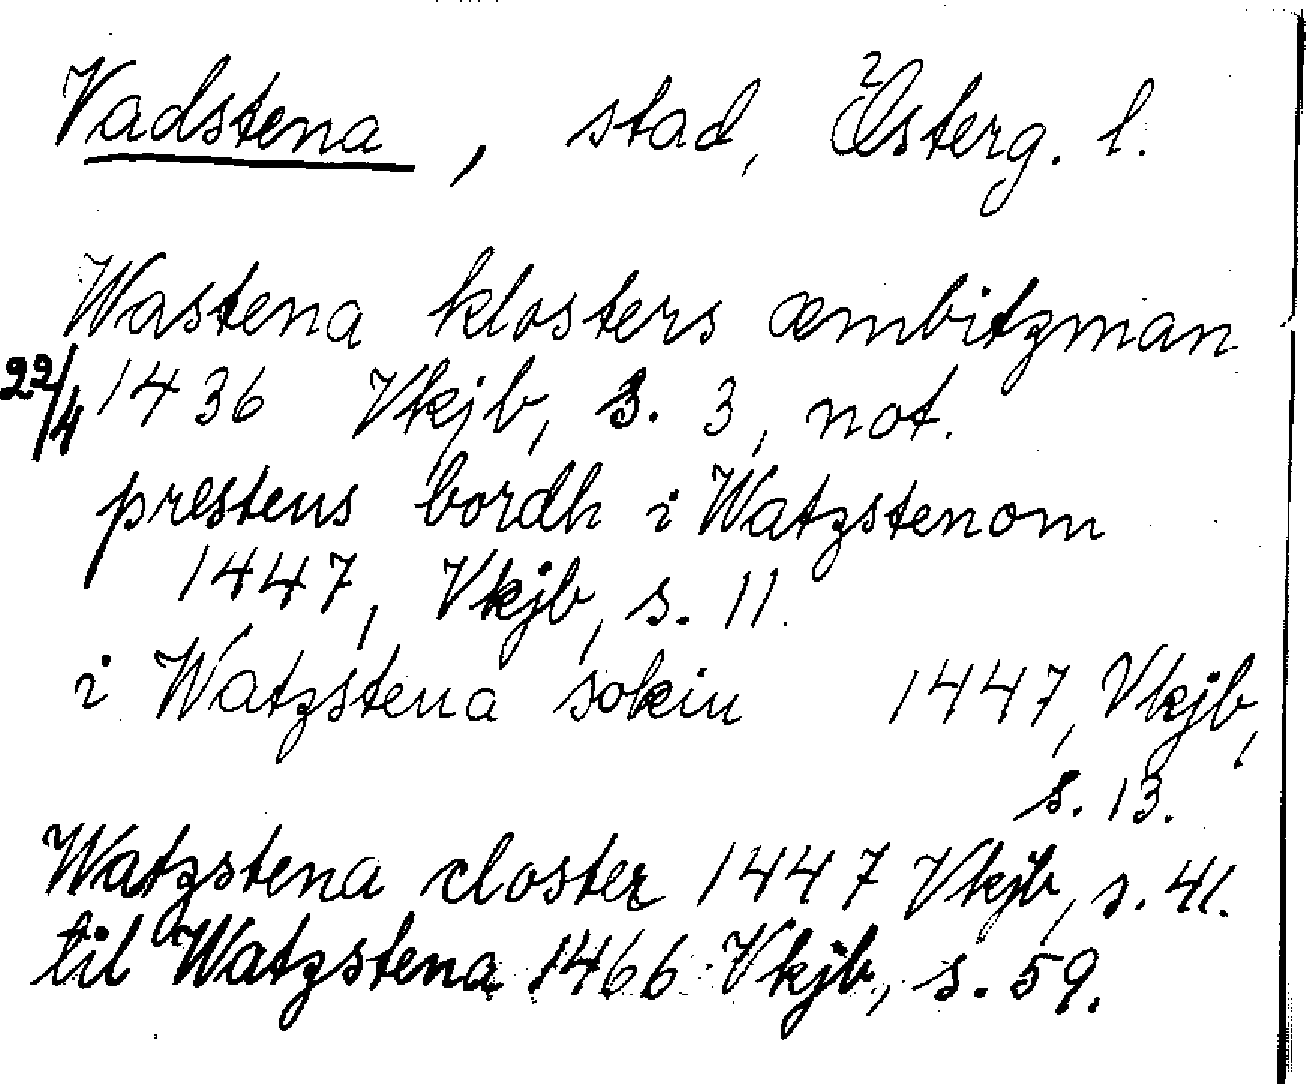 Vadstena, stad, Österg. l.
Wastena klosters æmbitzman
22/4 1436 Vkjb, s. 3, not.
prestens bordh i Watzstenom
1447, Vkjb, s. 11.
i Watzstena sokin 1447, Vkjb,
s. 13.
Watzstena closter 1447 Vkjb, s. 41.
til Watzstena 1466 Vkjb, s. 59.